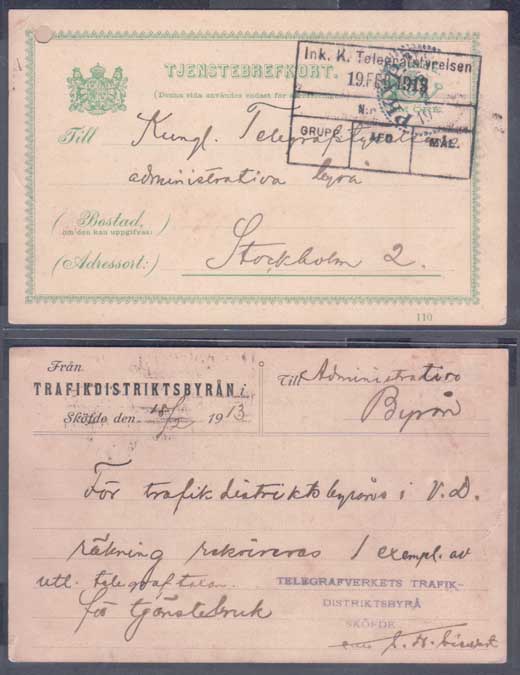 TJENSTEBREFKORT.
(Denna sida användes endast för
Ink. K. Telegrafstyrelsen
19.FEB.1913
N:r
GRUPP. AFD. MÅL.
Till Kungl. Telegrafstyrelsens
administrativa byrå
(Bostad,
om den kan uppgifvas:)
(Adressort:) Stockholm 2.
110
Från
TRAFIKDISTRIKTSBYRÅN i
Sköfde den 18/2 1913
Till Administrativa
Byrån
För trafikdistriktsbyråns i V.D.
räkning rekvireras 1 exempl. av
utl. telegraftaxan
för tjänstebruk
TELEGRAFVERKETS TRAFIK-
DISTRIKTSBYRÅ
SKÖFDE